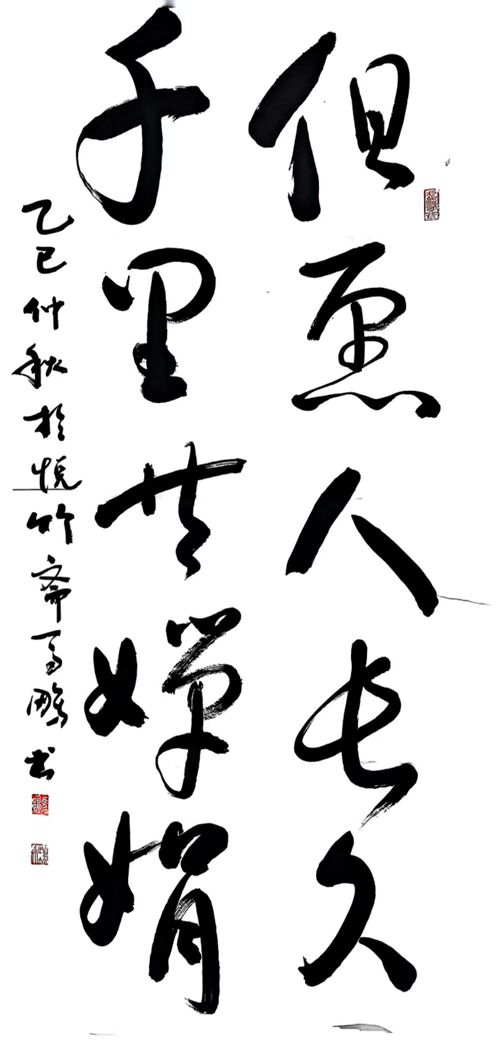 但愿人长久
千里共婵娟
乙巳仲秋于悦竹斋马鹏书